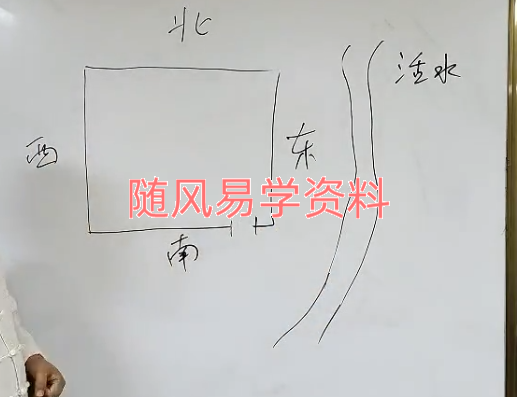 北
活水
西
东
随风易学资料
南